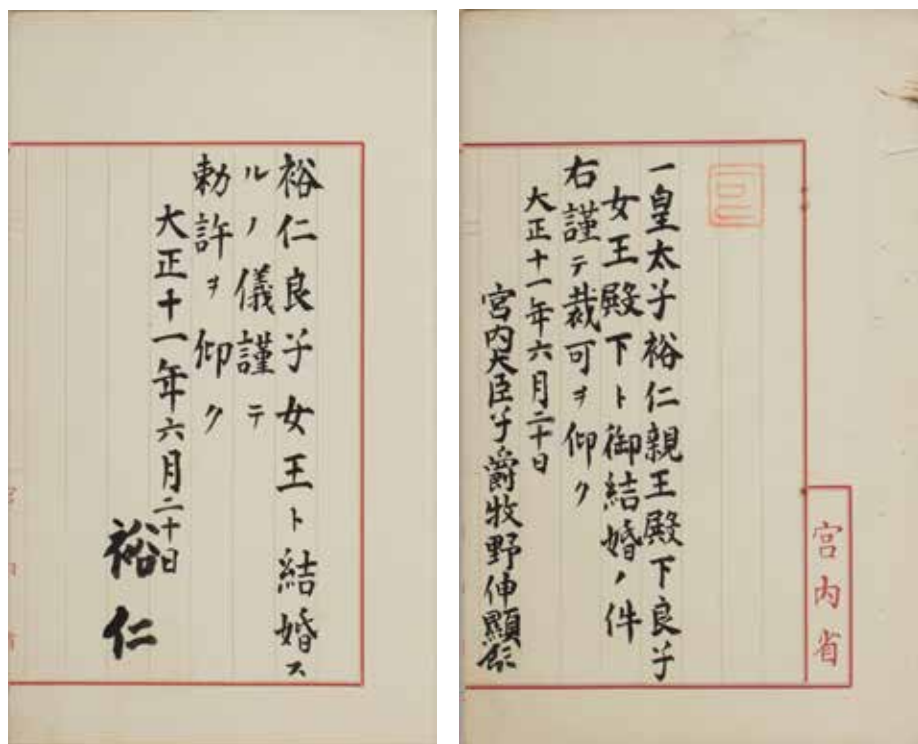 宮内省
可
一皇太子裕仁親王殿下良子
女王殿下ト御結婚ノ件
右謹テ裁可ヲ仰ク
大正十一年六月二十日
宮内大臣子爵牧野伸顯
裕仁良子女王ト結婚ス
ルノ儀謹テ
勅許ヲ仰ク
大正十一年六月二十日
裕仁